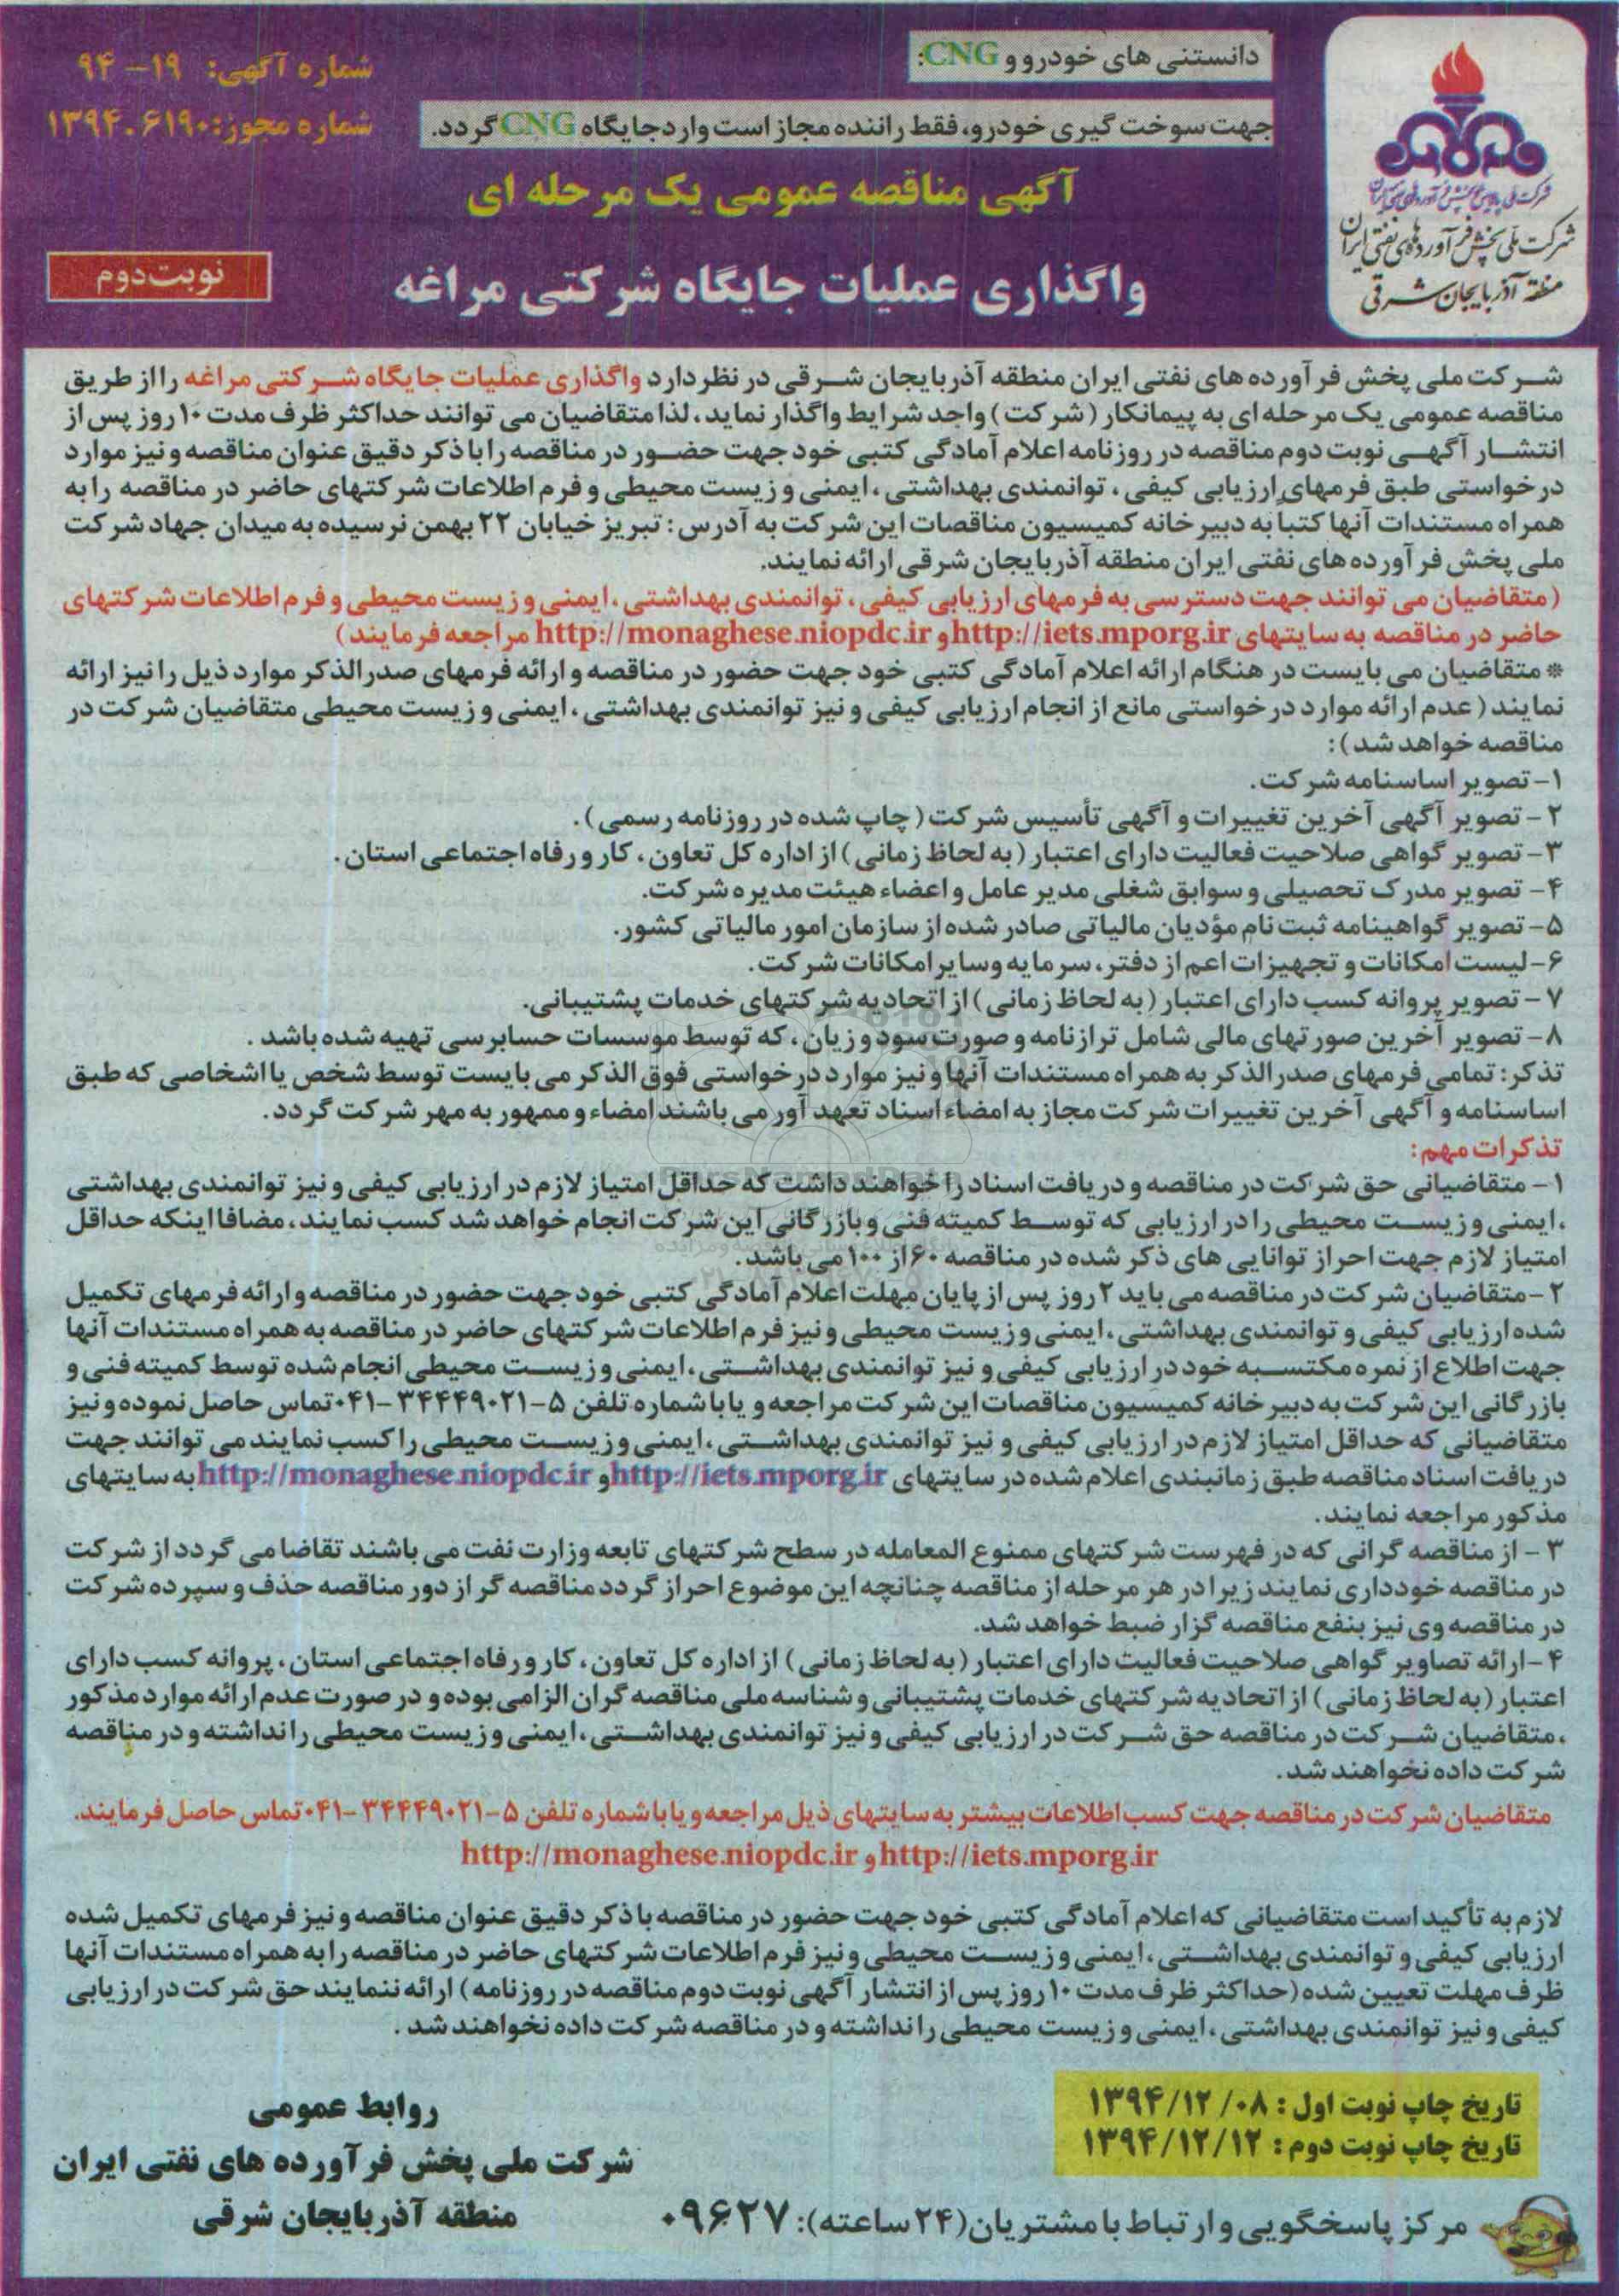 دانستنی های خودرو و CNG:
جهت سوخت گیری خودرو، فقط راننده مجاز است وارد جایگاه CNG گردد.
شماره آگهی: ۱۹- ۹۴
شماره مجوز: ۱۳۹۴.۶۱۹۰
شرکت ملی پالایش و پخش فرآورده های نفتی ایران
شرکت ملی پخش فرآورده های نفتی ایران
منطقه آذربایجان شرقی
آگهی مناقصه عمومی یک مرحله ای
واگذاری عملیات جایگاه شرکتی مراغه
نوبت دوم
شرکت ملی پخش فرآورده های نفتی ایران منطقه آذربایجان شرقی در نظر دارد واگذاری عملیات جایگاه شرکتی مراغه را از طریق
مناقصه عمومی یک مرحله ای به پیمانکار (شرکت) واجد شرایط واگذار نماید، لذا متقاضیان می توانند حداکثر ظرف مدت ۱۰ روز پس از
انتشار آگهی نوبت دوم مناقصه در روزنامه اعلام آمادگی کتبی خود جهت حضور در مناقصه را با ذکر دقیق عنوان مناقصه و نیز موارد
درخواستی طبق فرمهای ارزیابی کیفی، توانمندی بهداشتی، ایمنی و زیست محیطی و فرم اطلاعات شرکتهای حاضر در مناقصه را به
همراه مستندات آنها کتباً به دبیرخانه کمیسیون مناقصات این شرکت به آدرس: تبریز خیابان ۲۲ بهمن نرسیده به میدان جهاد شرکت
ملی پخش فرآورده های نفتی ایران منطقه آذربایجان شرقی ارائه نمایند.
(متقاضیان می توانند جهت دسترسی به فرمهای ارزیابی کیفی، توانمندی بهداشتی، ایمنی و زیست محیطی و فرم اطلاعات شرکتهای
حاضر در مناقصه به سایتهای http://iets.mporg.ir و http://monaghese.niopdc.ir مراجعه فرمایند)
* متقاضیان می بایست در هنگام ارائه اعلام آمادگی کتبی خود جهت حضور در مناقصه و ارائه فرمهای صدرالذکر موارد ذیل را نیز ارائه
نمایند (عدم ارائه موارد درخواستی مانع از انجام ارزیابی کیفی و نیز توانمندی بهداشتی، ایمنی و زیست محیطی متقاضیان شرکت در
مناقصه خواهد شد):
۱- تصویر اساسنامه شرکت.
۲- تصویر آگهی آخرین تغییرات و آگهی تأسیس شرکت (چاپ شده در روزنامه رسمی).
۳- تصویر گواهی صلاحیت فعالیت دارای اعتبار (به لحاظ زمانی) از اداره کل تعاون، کار و رفاه اجتماعی استان.
۴- تصویر مدرک تحصیلی و سوابق شغلی مدیر عامل و اعضاء هیئت مدیره شرکت.
۵- تصویر گواهینامه ثبت نام مؤدیان مالیاتی صادر شده از سازمان امور مالیاتی کشور.
۶- لیست امکانات و تجهیزات اعم از دفتر، سرمایه وسایر امکانات شرکت.
۷- تصویر پروانه کسب دارای اعتبار (به لحاظ زمانی) از اتحادیه شرکتهای خدمات پشتیبانی.
۸- تصویر آخرین صورتهای مالی شامل ترازنامه و صورت سود و زیان، که توسط موسسات حسابرسی تهیه شده باشد.
تذکر: تمامی فرمهای صدرالذکر به همراه مستندات آنها و نیز موارد درخواستی فوق الذکر می بایست توسط شخص یا اشخاصی که طبق
اساسنامه و آگهی آخرین تغییرات شرکت مجاز به امضاء اسناد تعهد آور می باشند امضاء و ممهور به مهر شرکت گردد.
تذکرات مهم:
۱- متقاضیانی حق شرکت در مناقصه و دریافت اسناد را خواهند داشت که حداقل امتیاز لازم در ارزیابی کیفی و نیز توانمندی بهداشتی
، ایمنی و زیست محیطی را در ارزیابی که توسط کمیته فنی و بازرگانی این شرکت انجام خواهد شد کسب نمایند، مضافا اینکه حداقل
امتیاز لازم جهت احراز توانایی های ذکر شده در مناقصه ۶۰ از ۱۰۰ می باشد.
۲- متقاضیان شرکت در مناقصه می باید ۲ روز پس از پایان مهلت اعلام آمادگی کتبی خود جهت حضور در مناقصه و ارائه فرمهای تکمیل
شده ارزیابی کیفی و توانمندی بهداشتی، ایمنی و زیست محیطی و نیز فرم اطلاعات شرکتهای حاضر در مناقصه به همراه مستندات آنها
جهت اطلاع از نمره مکتسبه خود در ارزیابی کیفی و نیز توانمندی بهداشتی، ایمنی و زیست محیطی انجام شده توسط کمیته فنی و
بازرگانی این شرکت به دبیرخانه کمیسیون مناقصات این شرکت مراجعه و یا با شماره تلفن ۵-۳۴۴۴۹۰۲۱-۰۴۱ تماس حاصل نموده و نیز
متقاضیانی که حداقل امتیاز لازم در ارزیابی کیفی و نیز توانمندی بهداشتی، ایمنی و زیست محیطی را کسب نمایند می توانند جهت
دریافت اسناد مناقصه طبق زمانبندی اعلام شده در سایتهای http://iets.mporg.ir و http://monaghese.niopdc.ir به سایتهای
مذکور مراجعه نمایند.
۳- از مناقصه گرانی که در فهرست شرکتهای ممنوع المعامله در سطح شرکتهای تابعه وزارت نفت می باشند تقاضا می گردد از شرکت
در مناقصه خودداری نمایند زیرا در هر مرحله از مناقصه چنانچه این موضوع احراز گردد مناقصه گر از دور مناقصه حذف و سپرده شرکت
در مناقصه وی نیز بنفع مناقصه گزار ضبط خواهد شد.
۴- ارائه تصاویر گواهی صلاحیت فعالیت دارای اعتبار (به لحاظ زمانی) از اداره کل تعاون، کار و رفاه اجتماعی استان، پروانه کسب دارای
اعتبار (به لحاظ زمانی) از اتحادیه شرکتهای خدمات پشتیبانی و شناسه ملی مناقصه گران الزامی بوده و در صورت عدم ارائه موارد مذکور
، متقاضیان شرکت در مناقصه حق شرکت در ارزیابی کیفی و نیز توانمندی بهداشتی، ایمنی و زیست محیطی را نداشته و در مناقصه
شرکت داده نخواهند شد.
متقاضیان شرکت در مناقصه جهت کسب اطلاعات بیشتر به سایتهای ذیل مراجعه و یا با شماره تلفن ۵-۳۴۴۴۹۰۲۱-۰۴۱ تماس حاصل فرمایند.
http://iets.mporg.ir و http://monaghese.niopdc.ir
لازم به تأکید است متقاضیانی که اعلام آمادگی کتبی خود جهت حضور در مناقصه با ذکر دقیق عنوان مناقصه و نیز فرمهای تکمیل شده
ارزیابی کیفی و توانمندی بهداشتی، ایمنی و زیست محیطی و نیز فرم اطلاعات شرکتهای حاضر در مناقصه را به همراه مستندات آنها
ظرف مهلت تعیین شده (حداکثر ظرف مدت ۱۰ روز پس از انتشار آگهی نوبت دوم مناقصه در روزنامه) ارائه ننمایند حق شرکت در ارزیابی
کیفی و نیز توانمندی بهداشتی، ایمنی و زیست محیطی را نداشته و در مناقصه شرکت داده نخواهند شد.
تاریخ چاپ نوبت اول: ۱۳۹۴/۱۲/۰۸
تاریخ چاپ نوبت دوم: ۱۳۹۴/۱۲/۱۲
روابط عمومی
شرکت ملی پخش فرآورده های نفتی ایران
منطقه آذربایجان شرقی
مرکز پاسخگویی و ارتباط با مشتریان (۲۴ ساعته): ۰۹۶۲۷